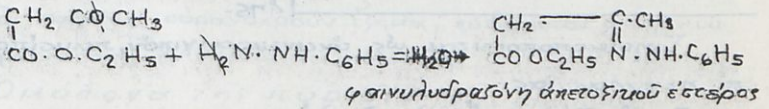 CH2 CO CH3 CH2 — C·CH3
CO·O·C2H5 + H2N·NH·C6H5 = H2O + CO OC2H5 N·NH·C6H5
φαινυλυδραζόνη ἀκετοξικοῦ ἐστέρος